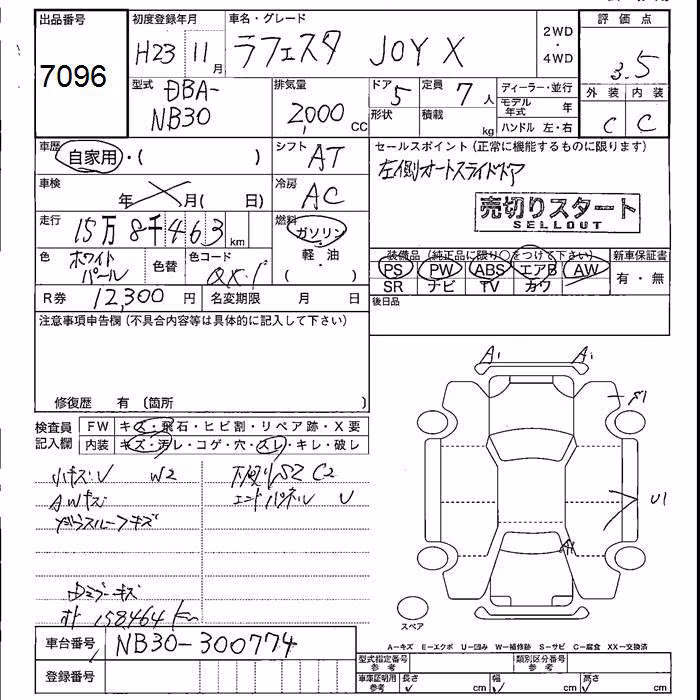 出品番号
7096
初度登録年月
H23 11月
車名・グレード
ラフェスタ JOY X
2WD
・
4WD
評価点
3.5
外装 内装
C C
型式
DBA-
NB30
排気量
2,000 CC
ドア
5
形状
定員
7人
積載
kg
ディーラー・並行
モデル年式 年
ハンドル 左・右
車歴
自家用・( )
シフト AT
セールスポイント(正常に機能するものに限ります)
左側オートスライドドア
車検
年 月( 日)
冷房 AC
売切りスタート
SELLOUT
走行
15万8千463km
燃料
ガソリン
軽・油
( )
色
ホワイト
パール
色替
色コード
QX・1
装備品(純正品に限り○をつけて下さい)
PS PW ABS エアB AW
SR ナビ TV カワ
新車保証書
有・無
R券 12,300円
名変期限 月 日
後日品
注意事項申告欄(不具合内容等は具体的に記入して下さい)
修復歴 有〔箇所 〕
検査員
記入欄
FW キズ・飛石・ヒビ割・リペア跡・X要
内装 キズ・汚レ・コゲ・穴・スレ・キレ・破レ
小キズ U W2
AWキズ
ガラスルーフキズ
下廻り S2 C2
エンドパネル U
158464 km
A1 A1
U1
スペア
A−キズ E−エクボ U−凹み W−補修跡 S−サビ C−腐食 XX−交換済
車台番号 NB30-300774
登録番号
型式指定番号
参考
類別区分番号
参考
車庫証明用
参考
長さ cm
幅 cm
高さ cm